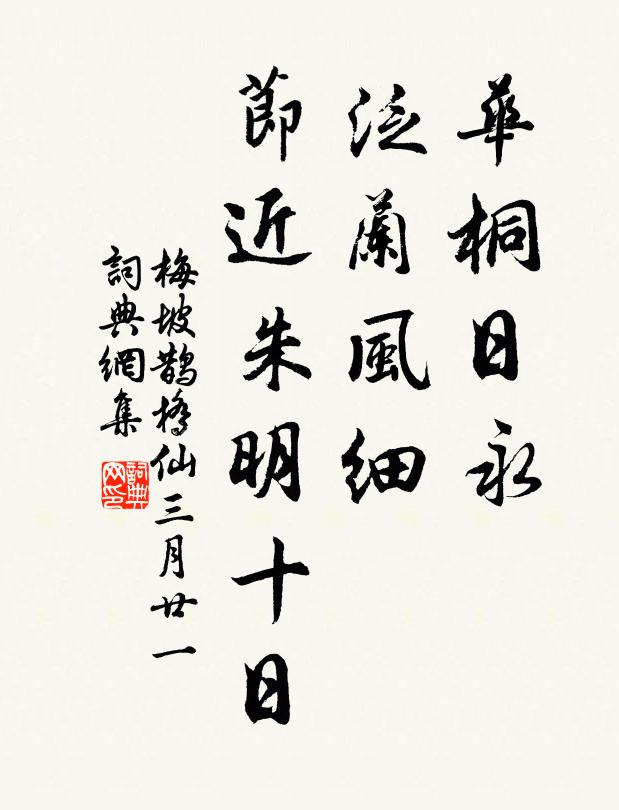 華桐日永
泛蘭風細
節近朱明十日
梅坡鵲橋仙三月廿一
詞典網集
詞典网印